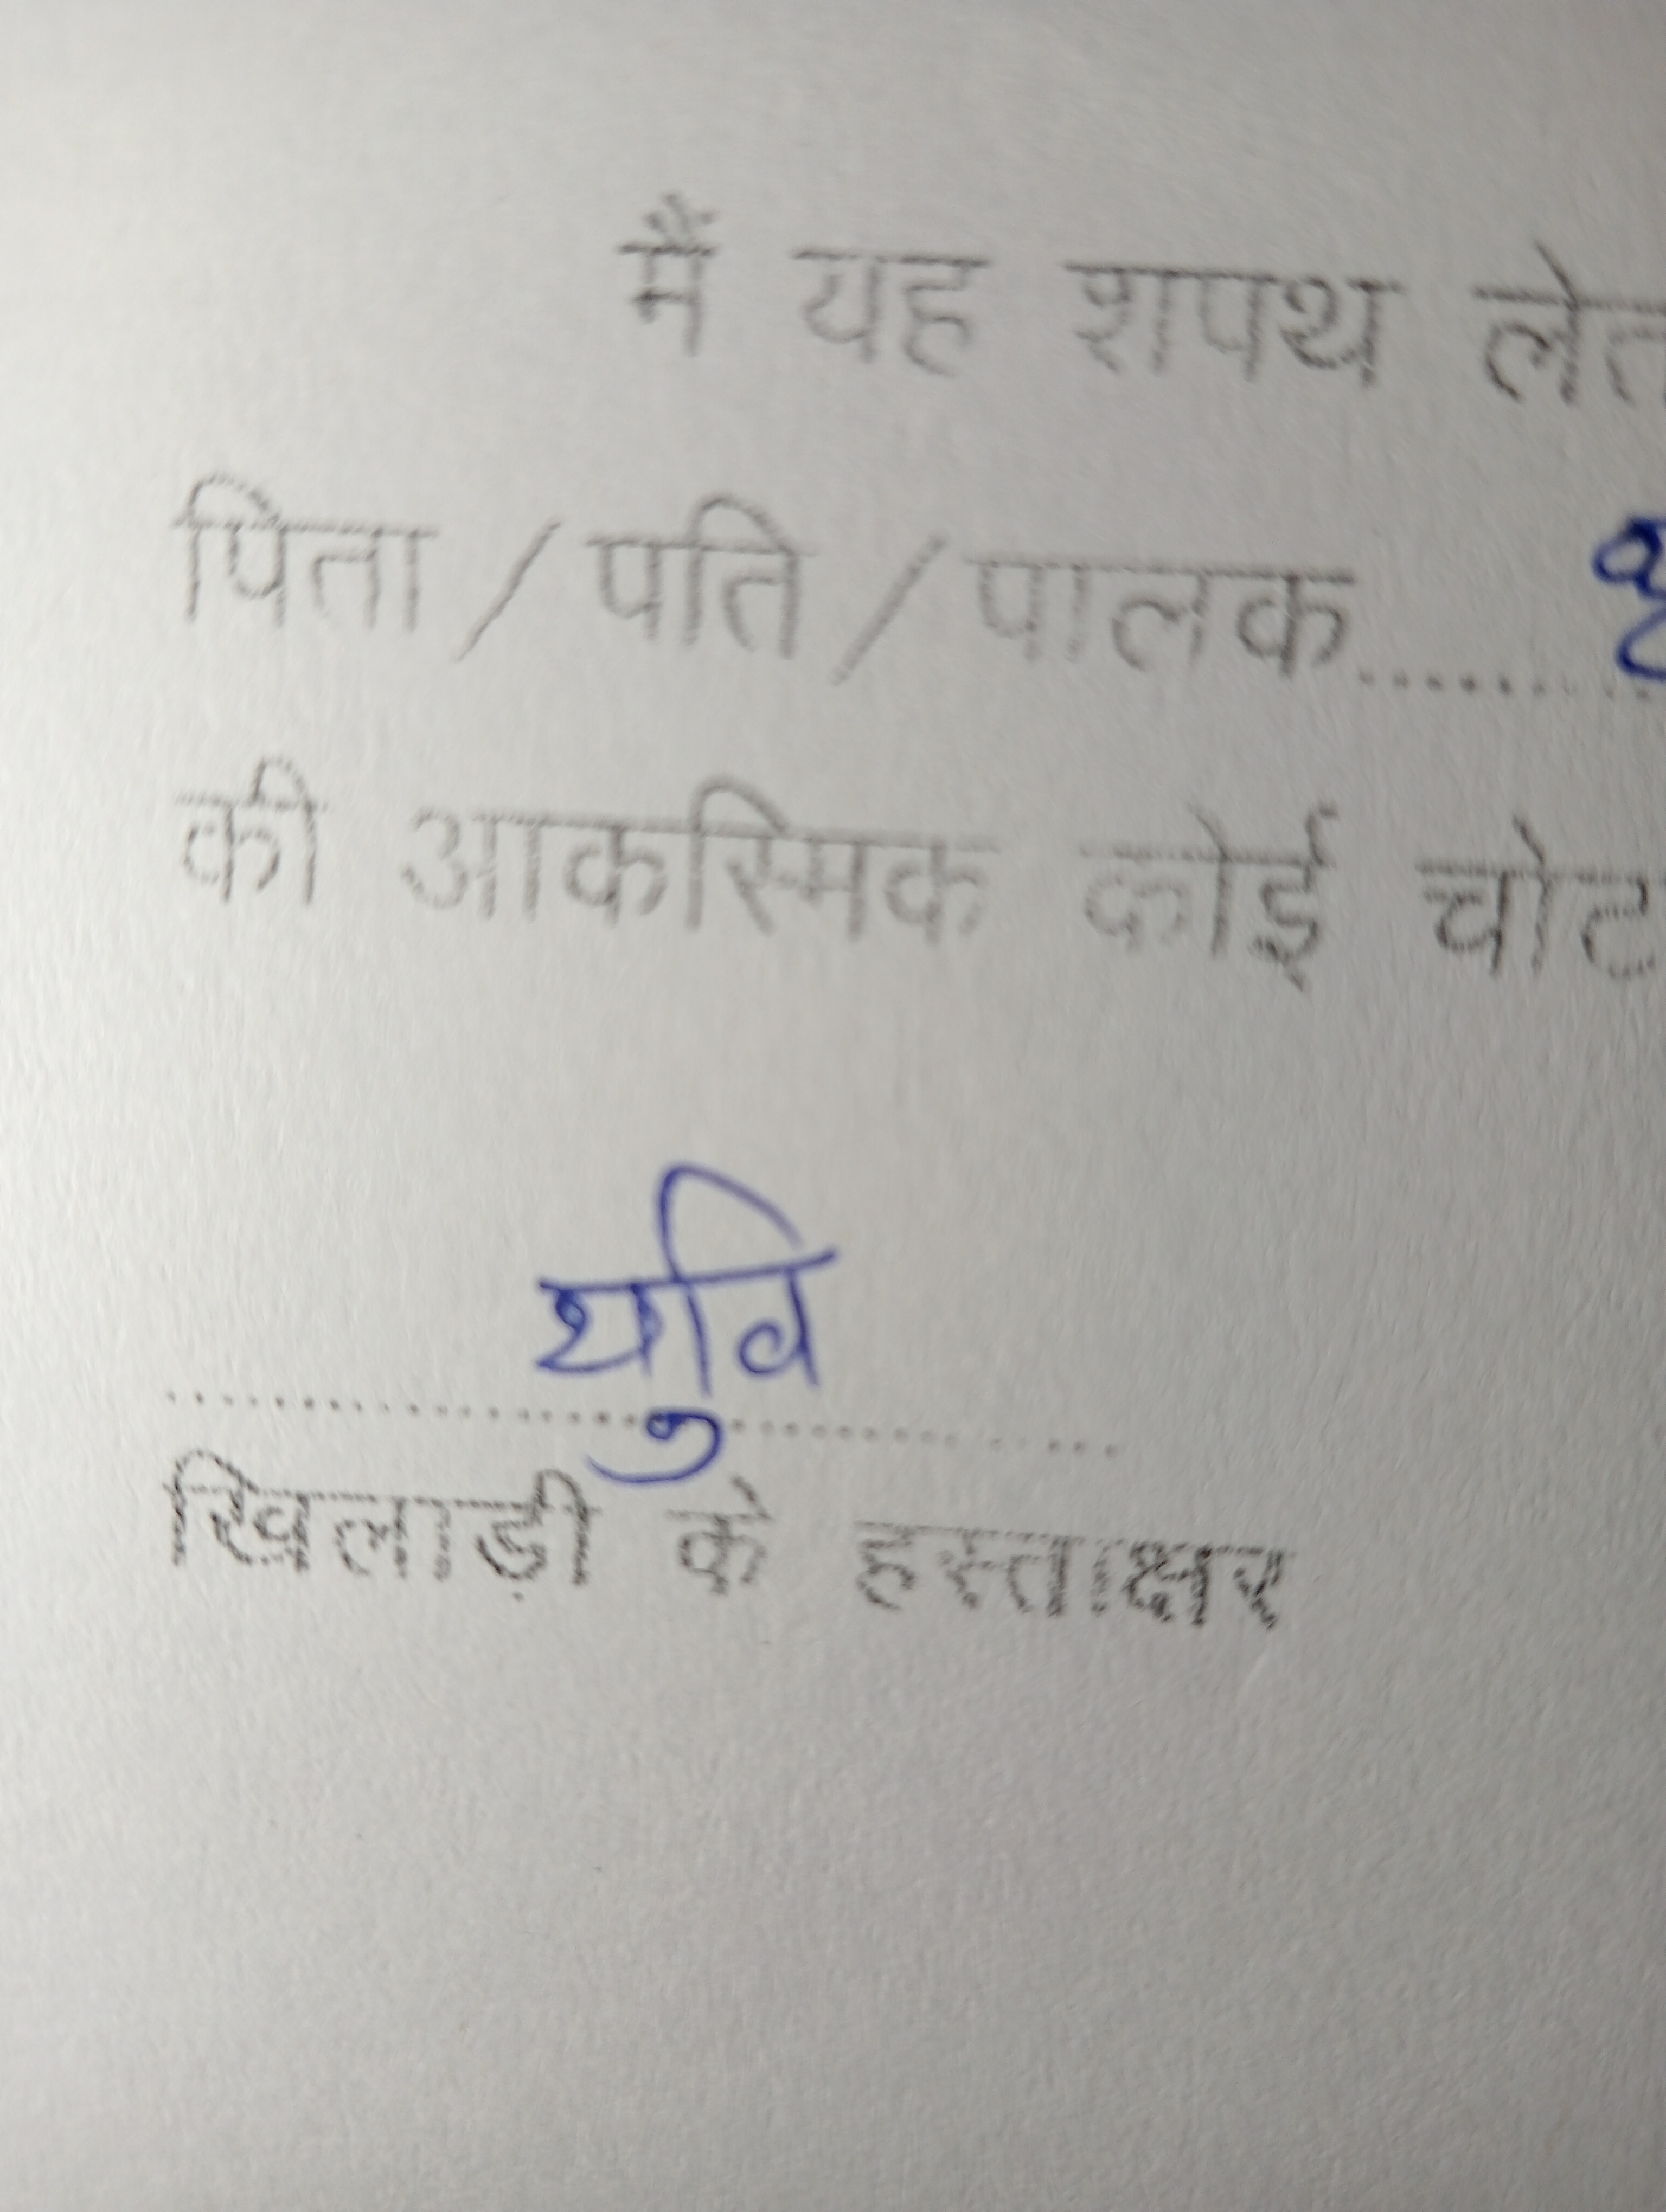 मैं यह शपथ लेत
पिता / पति / पालक..........
की आकस्मिक कोई चोट
युवि
..........................................
खिलाड़ी के हस्ताक्षर